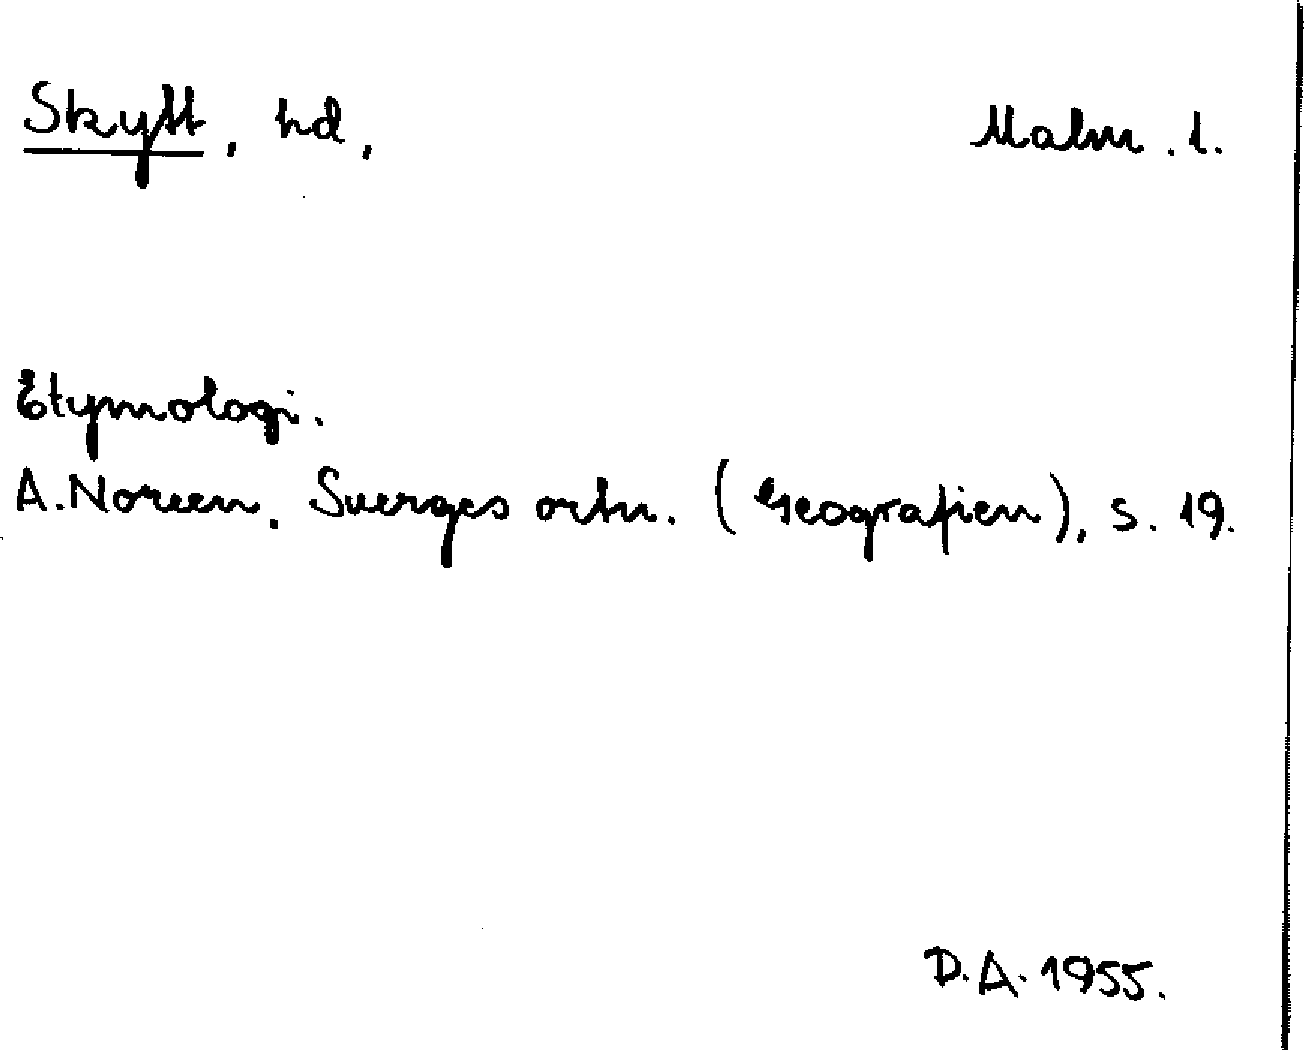 Skytt, hd,
Malm. l.
Etymologi.
A. Noreen, Sverges ortn. (Geografien), s. 19.
D.A. 1955.